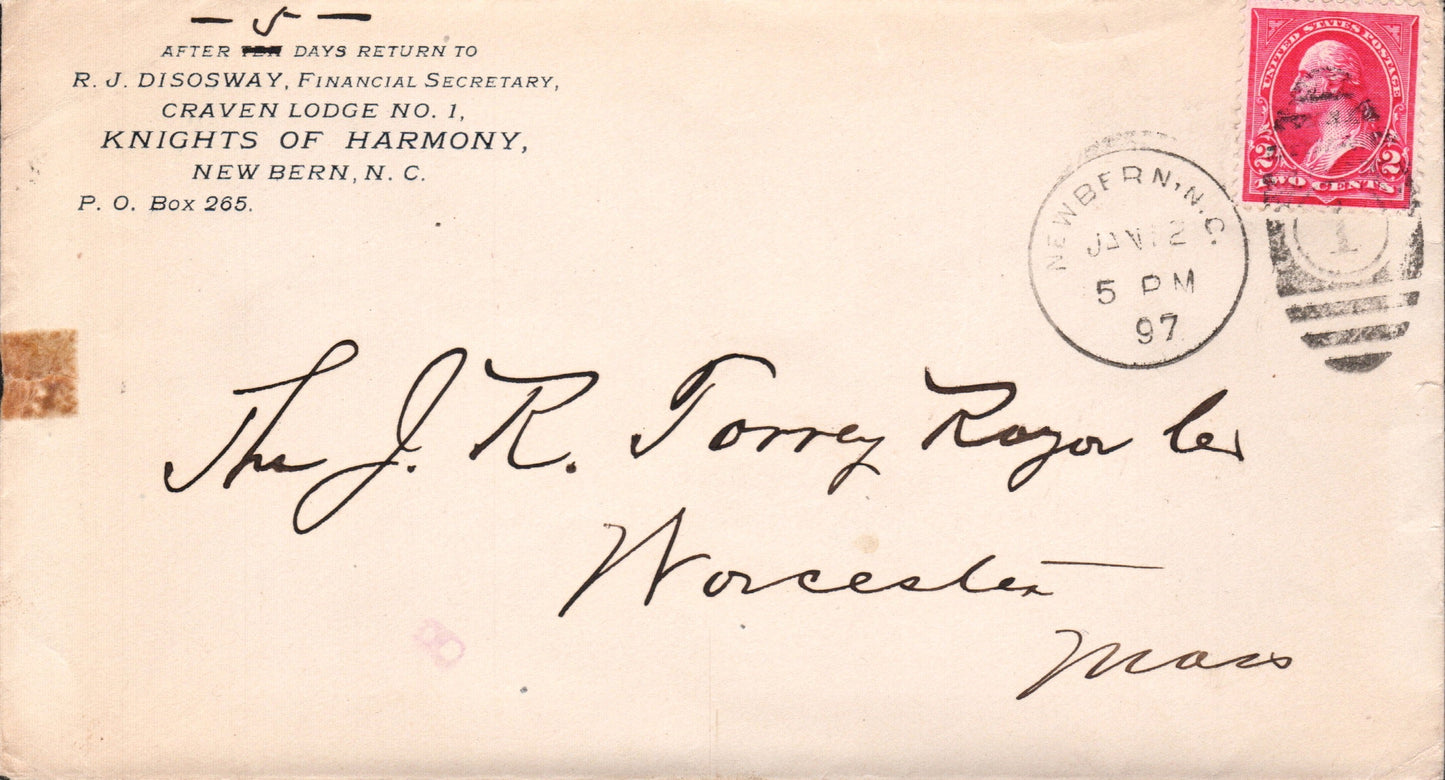 — 5 —
AFTER TEN DAYS RETURN TO
R. J. DISOSWAY, FINANCIAL SECRETARY,
CRAVEN LODGE NO. 1,
KNIGHTS OF HARMONY,
NEW BERN, N. C.
P. O. Box 265.
UNITED STATES POSTAGE
2 2
TWO CENTS
NEWBERN, N.C.
JAN 12
5 PM
97
1
The J. R. Torrey Razor Co
Worcester
Mass
8